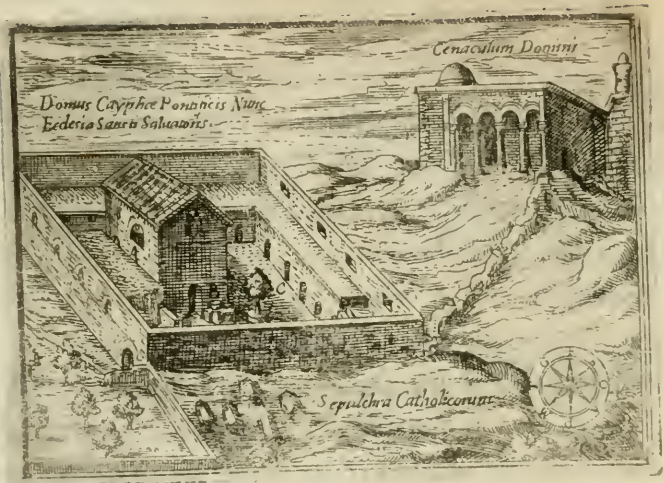 Cenaculum Domini
Domus Cayphæ Pontificis Nunc
Eclesia Sancti Saluatoris.
Sepulchra Catholicorum